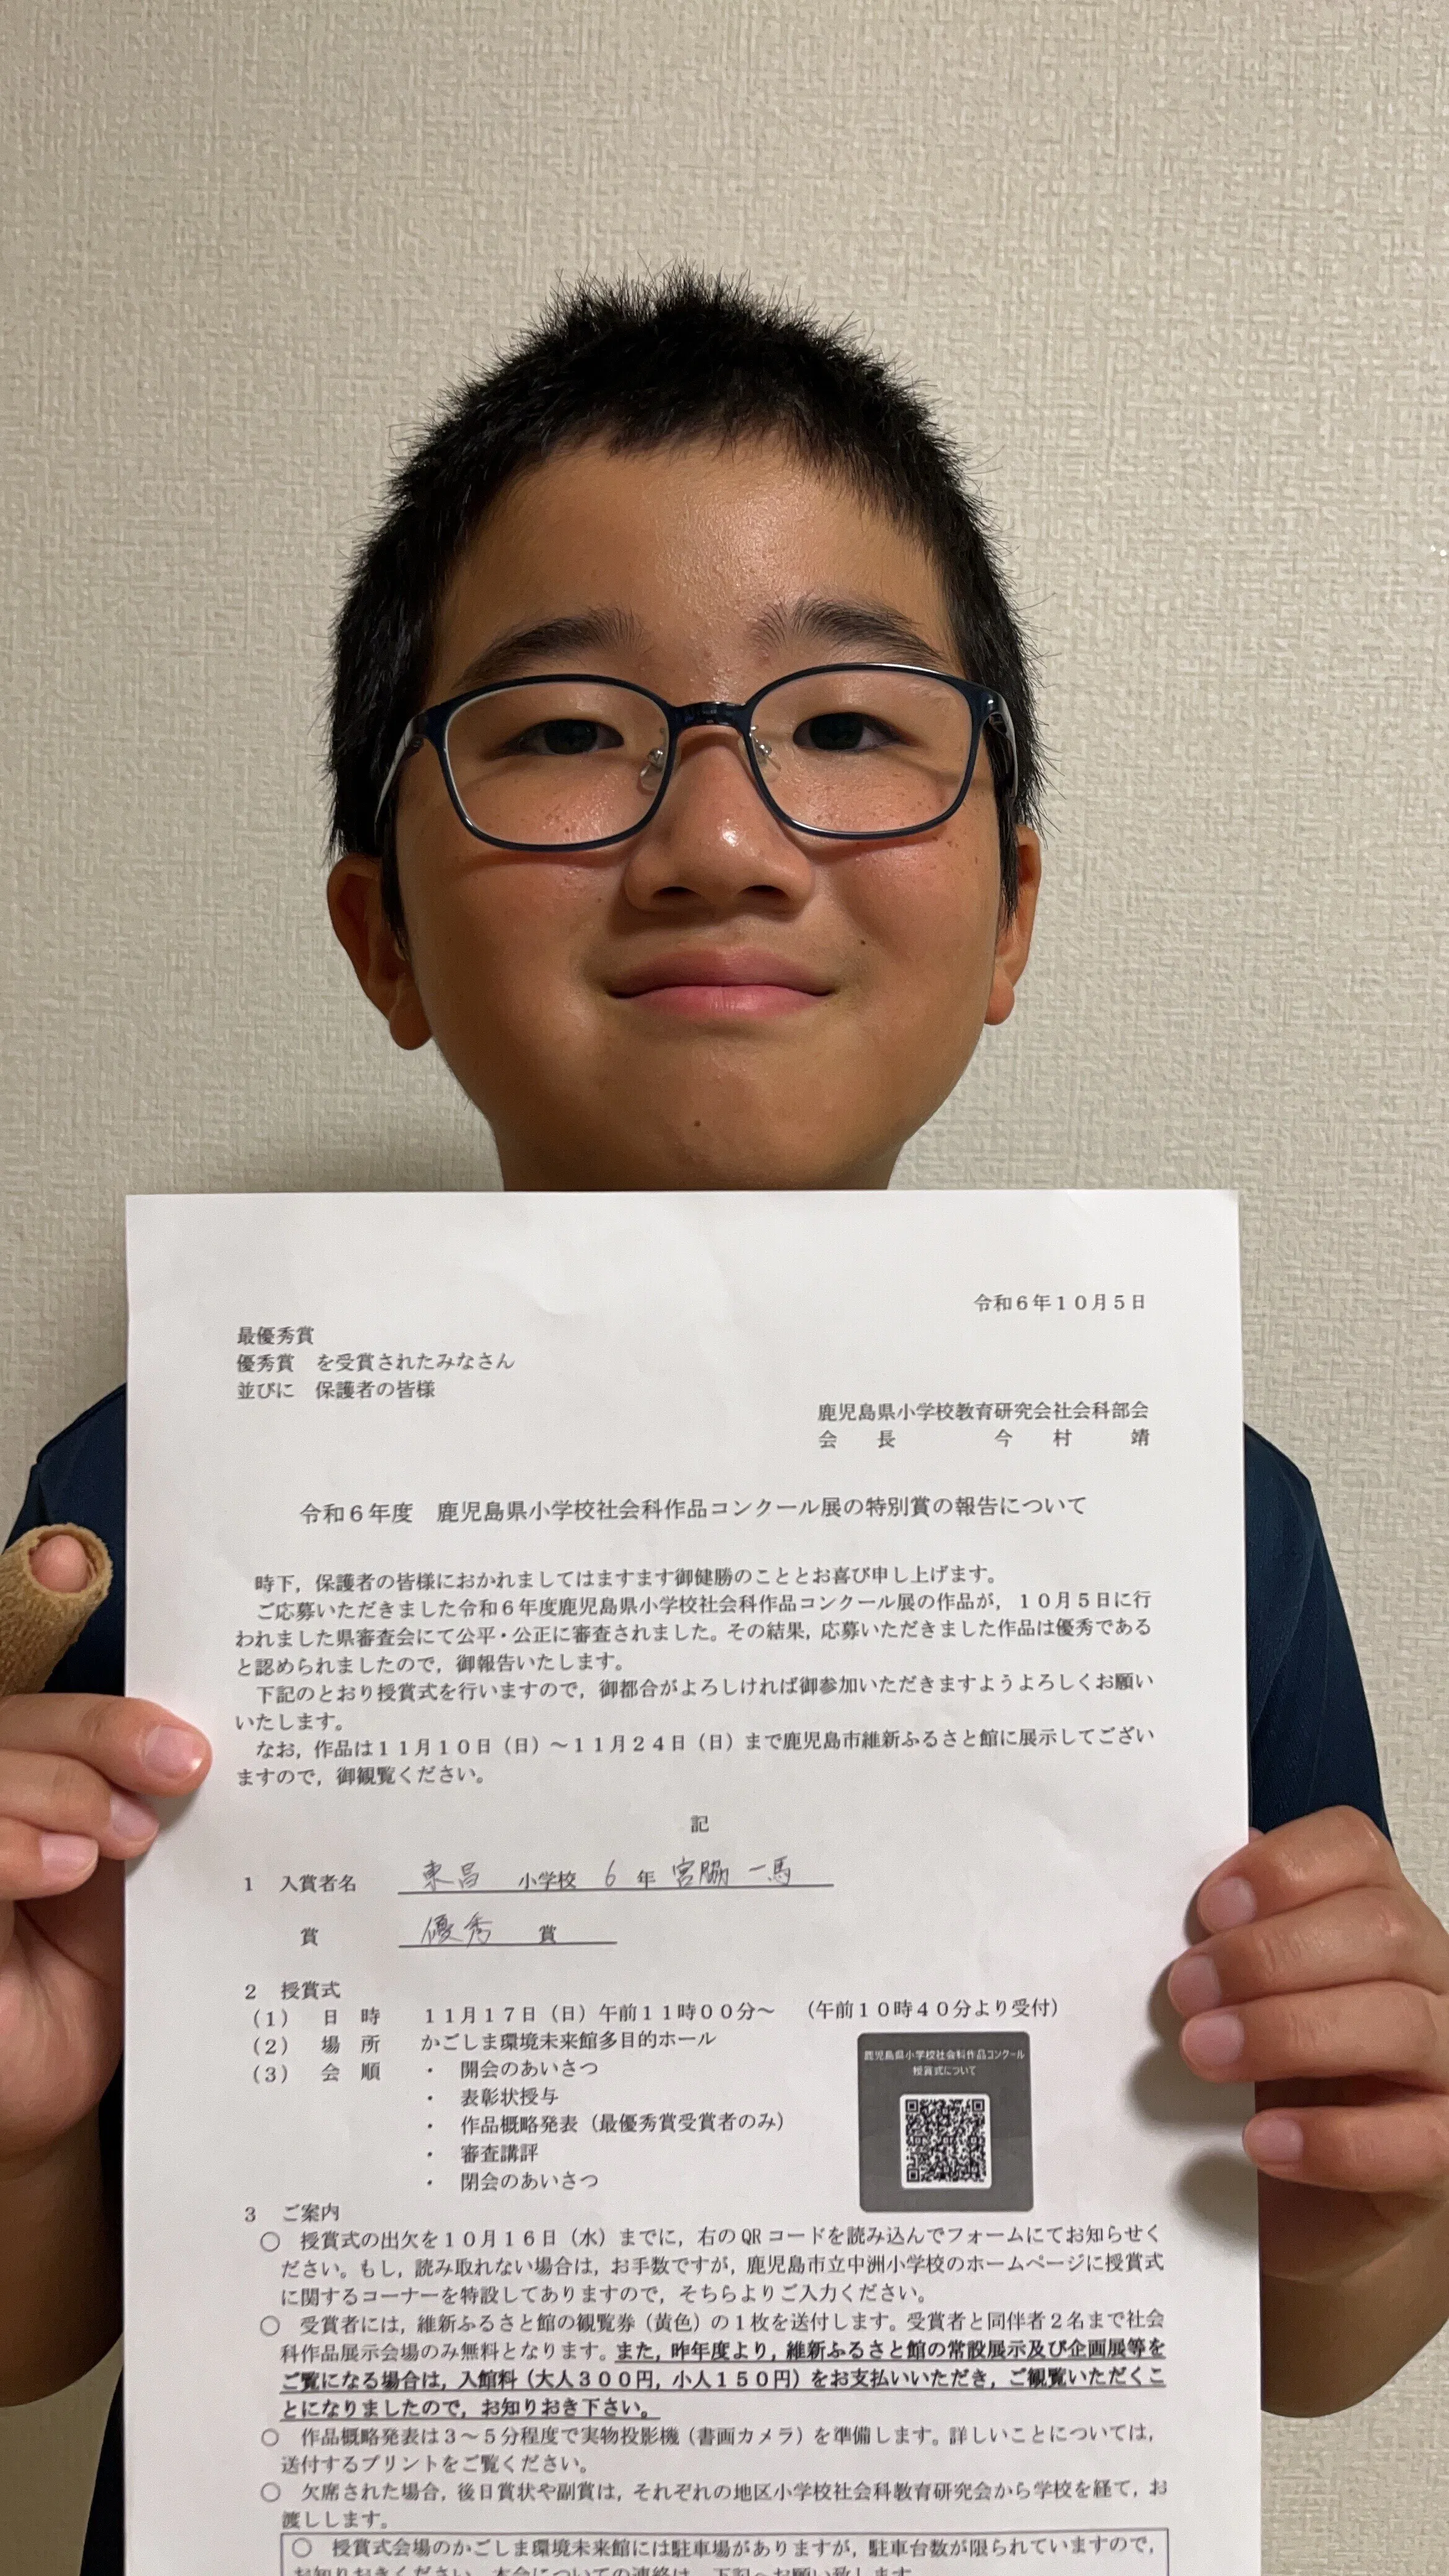 令和６年１０月５日
最優秀賞
優秀賞　を受賞されたみなさん
並びに　保護者の皆様
鹿児島県小学校教育研究会社会科部会
会　長　　　今　村　　靖
令和６年度　鹿児島県小学校社会科作品コンクール展の特別賞の報告について
時下，保護者の皆様におかれましてはますます御健勝のこととお喜び申し上げます。
ご応募いただきました令和６年度鹿児島県小学校社会科作品コンクール展の作品が，１０月５日に行
われました県審査会にて公平・公正に審査されました。その結果，応募いただきました作品は優秀である
と認められましたので，御報告いたします。
下記のとおり授賞式を行いますので，御都合がよろしければ御参加いただきますようよろしくお願い
いたします。
なお，作品は１１月１０日（日）～１１月２４日（日）まで鹿児島市維新ふるさと館に展示してござい
ますので，御観覧ください。
記
１　入賞者名　東昌　小学校　６　年　宮脇　一馬
賞　優秀　賞
２　授賞式
（１）　日　時　１１月１７日（日）午前１１時００分～　（午前１０時４０分より受付）
（２）　場　所　かごしま環境未来館多目的ホール
（３）　会　順　・　開会のあいさつ
・　表彰状授与
・　作品概略発表（最優秀賞受賞者のみ）
・　審査講評
・　閉会のあいさつ
鹿児島県小学校社会科作品コンクール
授賞式について
３　ご案内
○　授賞式の出欠を１０月１６日（水）までに，右のQRコードを読み込んでフォームにてお知らせく
ださい。もし，読み取れない場合は，お手数ですが，鹿児島市立中洲小学校のホームページに授賞式
に関するコーナーを特設してありますので，そちらよりご入力ください。
○　受賞者には，維新ふるさと館の観覧券（黄色）の１枚を送付します。受賞者と同伴者２名まで社会
科作品展示会場のみ無料となります。また，昨年度より，維新ふるさと館の常設展示及び企画展等を
ご覧になる場合は，入館料（大人３００円，小人１５０円）をお支払いいただき，ご観覧いただくこ
とになりましたので，お知りおき下さい。
○　作品概略発表は３～５分程度で実物投影機（書画カメラ）を準備します。詳しいことについては，
送付するプリントをご覧ください。
○　欠席された場合，後日賞状や副賞は，それぞれの地区小学校社会科教育研究会から学校を経て，お
渡しします。
○　授賞式会場のかごしま環境未来館には駐車場がありますが，駐車台数が限られていますので，